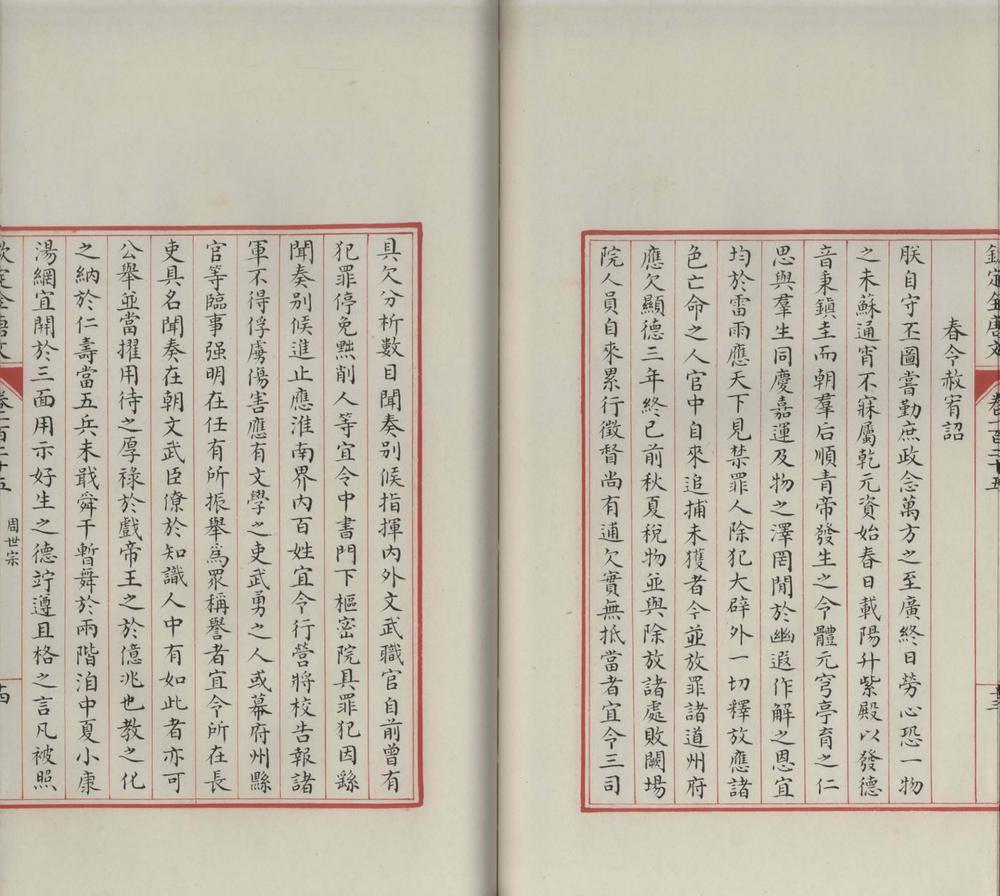 欽定全唐文 卷一百二十五 十三
春令赦宥詔
朕自守丕圖嘗勤庶政念萬方之至廣終日勞心恐一物
之未蘇通宵不寐屬乾元資始春日載陽升紫殿以發德
音秉鎮圭而朝羣后順青帝發生之令體元穹亭育之仁
思與羣生同慶嘉運及物之澤罔閒於幽遐作解之恩宜
均於雷雨應天下見禁罪人除犯大辟外一切釋放應諸
色亡命之人官中自來追捕未獲者今並放罪諸道州府
應欠顯德三年終已前秋夏稅物並與除放諸處敗闕場
院人員自來累行徵督尚有逋欠實無抵當者宜令三司
具欠分析數目聞奏别候指揮内外文武職官自前曾有
犯罪停免黜削人等宜令中書門下樞密院具罪犯因繇
聞奏别候進止應淮南界内百姓宜令行營將校告報諸
軍不得俘虜傷害應有文學之吏武勇之人或幕府州縣
官等臨事强明在任有所振舉爲眾稱譽者宜令所在長
吏具名聞奏在朝文武臣僚於知識人中有如此者亦可
公舉並當擢用待之厚祿於戲帝王之於億兆也教之化
之納於仁壽當五兵未戢舜干暫舞於兩階洎中夏小康
湯網宜開於三面用示好生之德竚遵且格之言凡被照
欽定全唐文 卷一百二十五 周世宗 十四